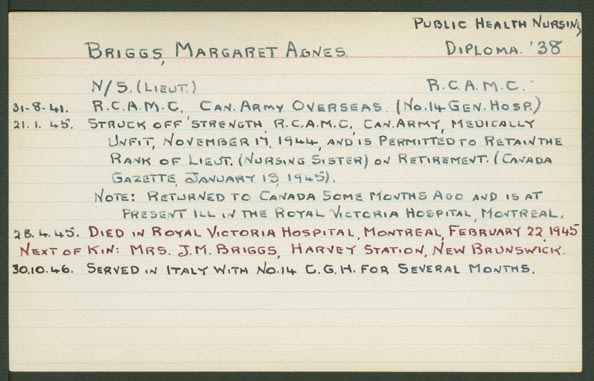 PUBLIC HEALTH NURSING
BRIGGS, MARGARET AGNES. DIPLOMA. '38
N/S. (LIEUT.) R.C.A.M.C.
31-8-41. R.C.A.M.C. CAN. ARMY OVERSEAS. (No. 14 GEN. HOSP.)
21.1.45. STRUCK OFF STRENGTH R.C.A.M.C, CAN. ARMY, MEDICALLY
UNFIT, NOVEMBER 17, 1944, AND IS PERMITTED TO RETAIN THE
RANK OF LIEUT. (NURSING SISTER) ON RETIREMENT. (CANADA
GAZETTE, JANUARY 13, 1945).
NOTE: RETURNED TO CANADA SOME MONTHS AGO AND IS AT
PRESENT ILL IN THE ROYAL VICTORIA HOSPITAL, MONTREAL.
28.4.45. DIED IN ROYAL VICTORIA HOSPITAL, MONTREAL, FEBRUARY 22, 1945
NEXT OF KIN: MRS. J.M. BRIGGS, HARVEY STATION, NEW BRUNSWICK.
30.10.46. SERVED IN ITALY WITH No. 14 C.G.H. FOR SEVERAL MONTHS.